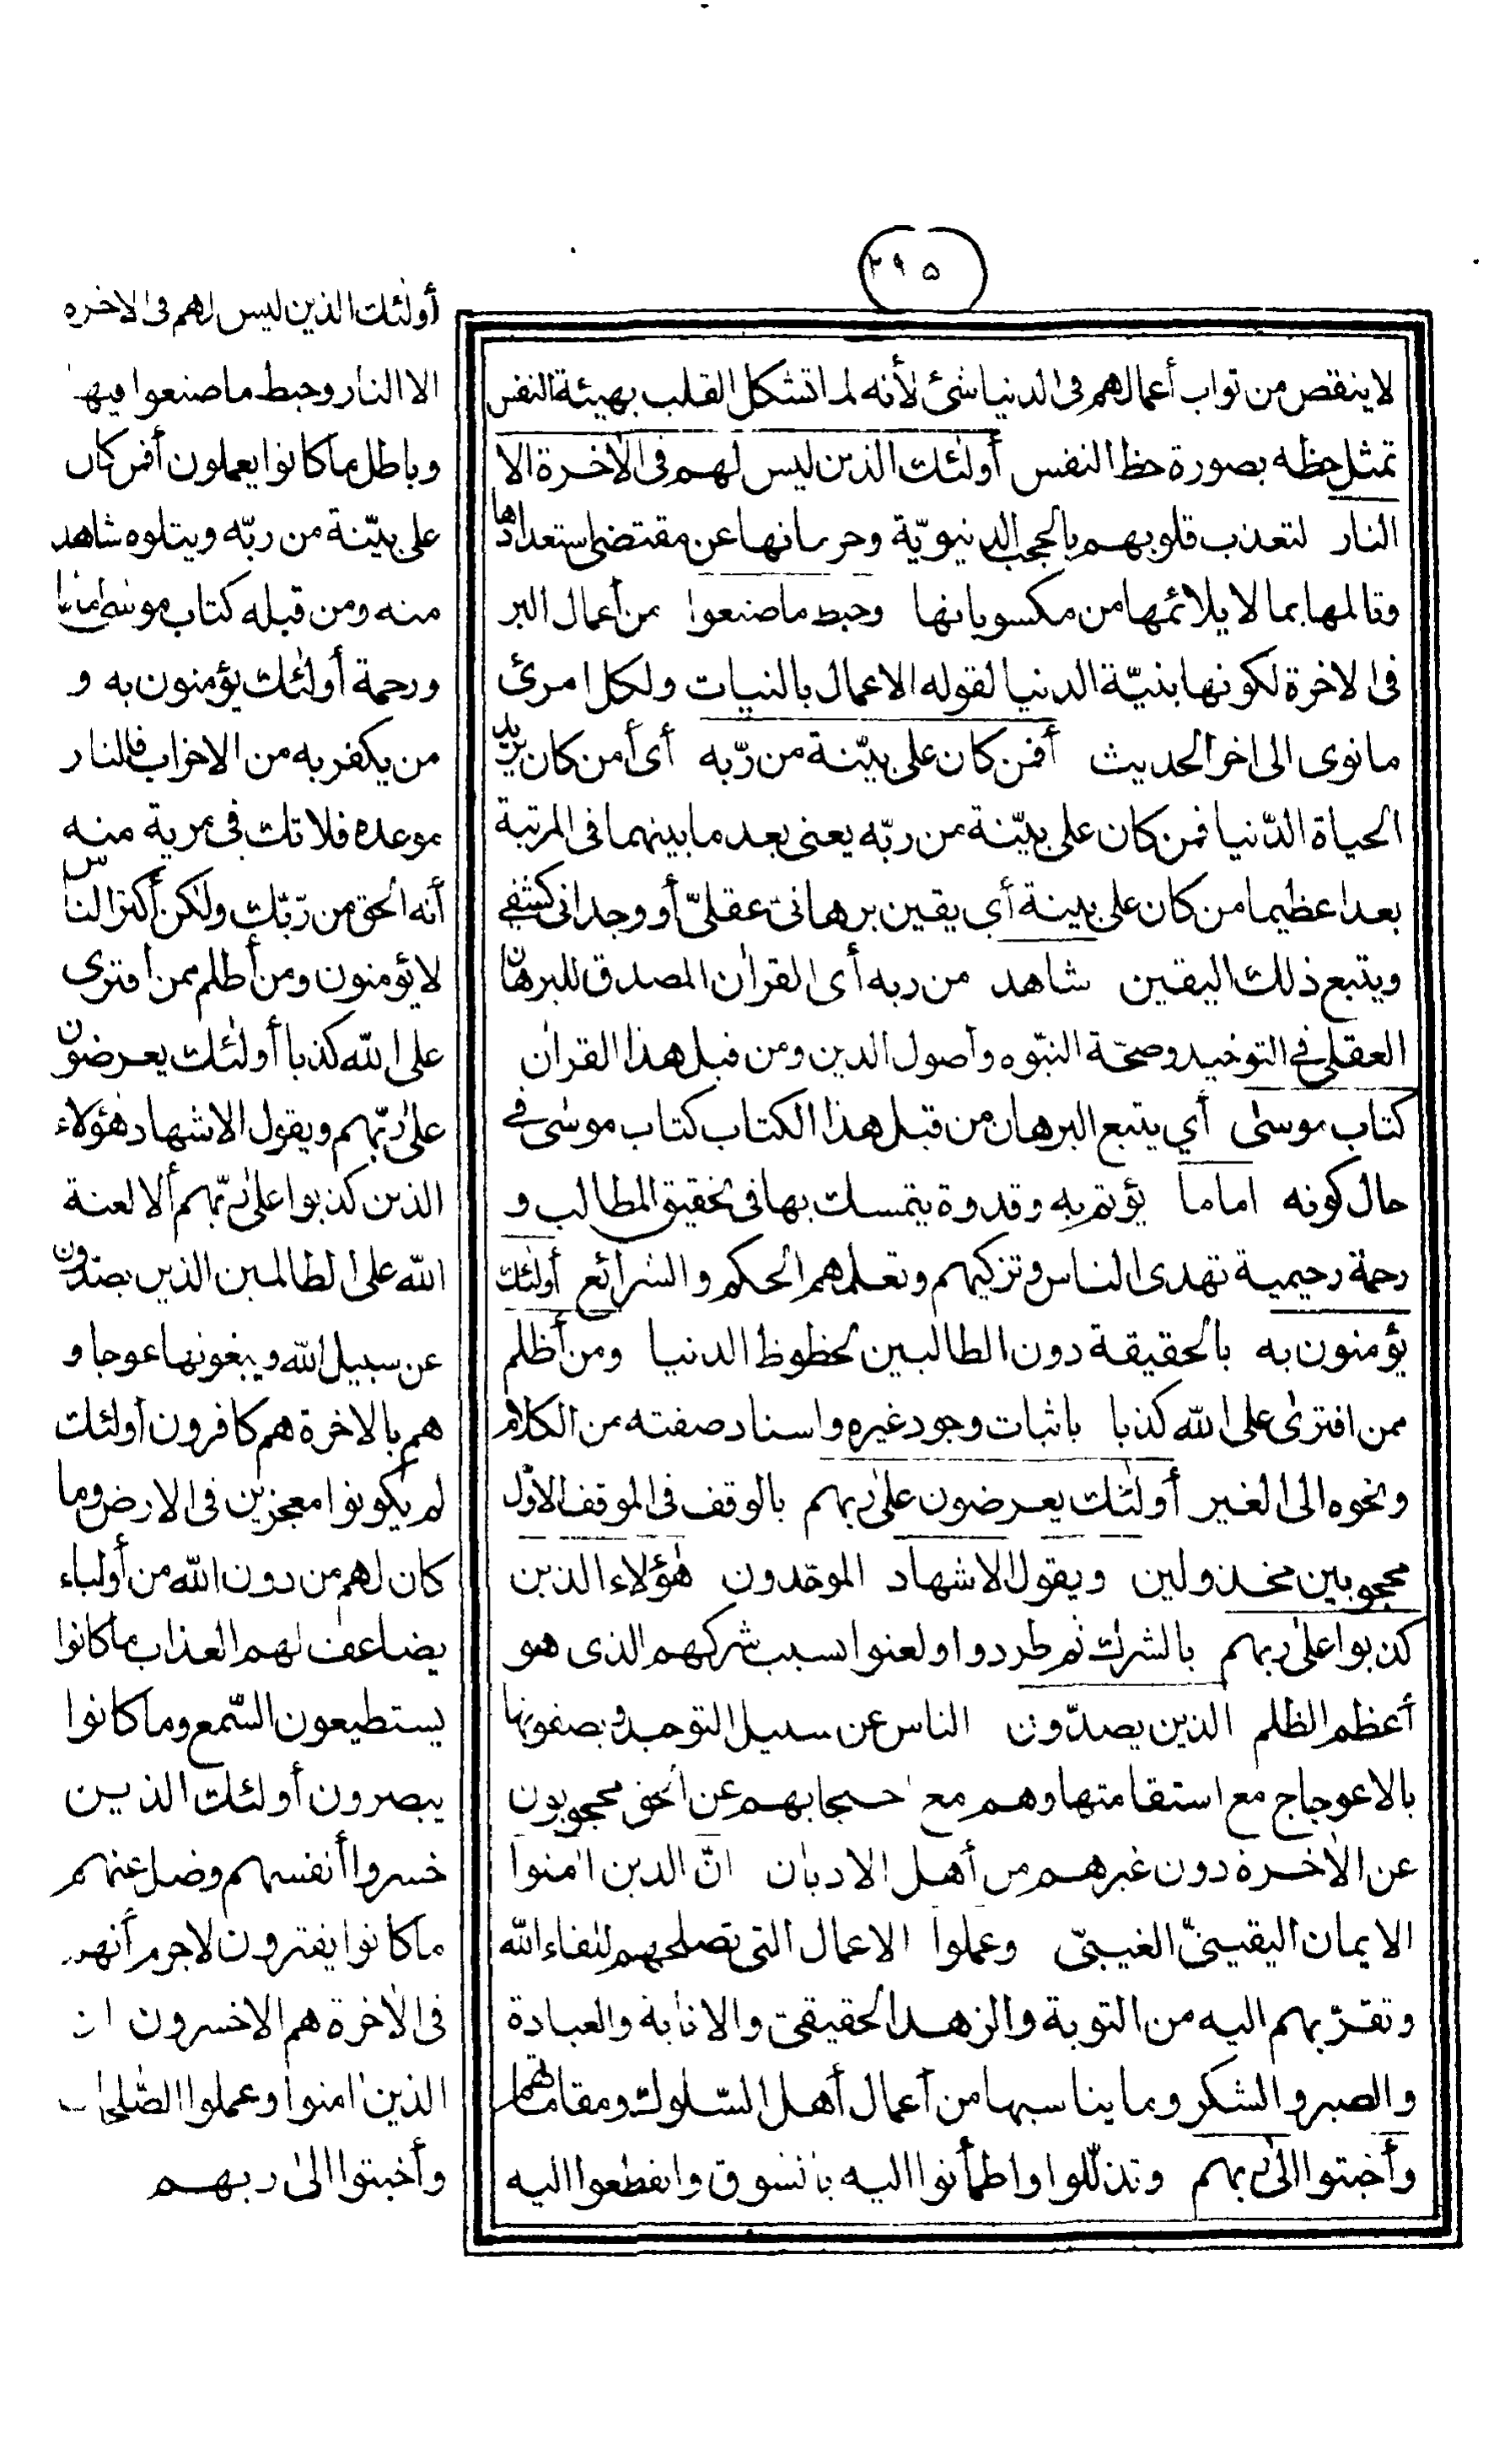 ٢٩٥
لا ينقص من ثواب أعمالهم فى الدنيا شئ لأنه لما تشكل القلب بهيئة النفس
تمثل حظه بصورة حظ النفس أولئك الذين ليس لهم فى الاخرة الا
النار لتعذب قلوبهم بالحجب الدنيويّة وحرمانها عن مقتضى استعدادها
وتالمها بما لا يلائمها من مكسوباتها وحبط ما صنعوا من أعمال البر
فى الاخرة لكونها بنيّة الدنيا لقوله الاعمال بالنيات ولكل امرئ
ما نوى الى اخر الحديث أفمن كان على بيّنة من ربّه أى أمن كان يريد
الحياة الدّنيا فمن كان على بيّنة من ربّه يعنى بعد ما بينهما فى المرتبة
بعدا عظيما من كان على بينة أي يقين برهانىّ عقلىّ أو وجدانى كشفى
ويتبع ذلك اليقين شاهد من ربه أى القران المصدق للبرهان
العقلى فى التوحيد وصحّة النبّوه وأصول الدين ومن قبل هذا القران
كتاب موسى أي يتبع البرهان من قبل هذا الكتاب كتاب موسى فى
حال كونه اماما يؤتم به وقدوة يتمسك بها فى تحقيق المطالب و
رحمة رحيمية تهدى الناس وتزكيهم وتعلمهم الحكم والشرائع أولئك
يؤمنون به بالحقيقة دون الطالبين لحظوظ الدنيا ومن أظلم
ممن افترى على الله كذبا باثبات وجود غيره واسناد صفته من الكلام
ونحوه الى الغير أولئك يعرضون على ربهم بالوقف فى الموقف الاوّل
محجوبين مخذولين ويقول الاشهاد الموحّدون هؤلاء الذين
كذبوا على ربهم بالشرك ثم طردوا ولعنوا بسبب شركهم الذى هو
أعظم الظلم الذين يصدّون الناس عن سبيل التوحيد ويصفونها
بالاعوجاج مع استقامتها وهم مع حجابهم عن الحق محجوبون
عن الاخرة دون غيرهم من أهل الاديان انّ الذين امنوا
الايمان اليقينىّ الغيبىّ وعملوا الاعمال التى تصلحهم للقاء الله
وتقرّبهم اليه من التوبة والزهد الحقيقىّ والانابة والعبادة
والصبر والشكر وما يناسبها من أعمال أهل السّلوك ومقاماتهم
وأخبتوا الى ربهم وتذلّلوا واطمأنوا اليه بالتسوق وانقطعوا اليه
أولئك الذين ليس لهم فى الاخره
الا النار وحبط ما صنعوا فيها
وباطل ما كانوا يعملون أفمن كان
على بيّنة من ربّه ويتلوه شاهد
منه ومن قبله كتاب موسى اماما
ورحمة أولئك يؤمنون به و
من يكفر به من الاحزاب فالنار
موعده فلا تك فى مرية منه
أنه الحق من ربّك ولكن أكثر الناس
لا يؤمنون ومن أظلم ممن افترى
على الله كذبا أولئك يعرضون
على ربّهم ويقول الاشهاد هؤلاء
الذين كذبوا على ربّهم ألا لعنة
الله على الظالمين الذين يصدّون
عن سبيل الله ويبغونها عوجا و
هم بالاخرة هم كافرون أولئك
لم يكونوا معجزين فى الارض وما
كان لهم من دون الله من أولياء
يضاعف لهم العذاب ما كانوا
يستطيعون السّمع وما كانوا
يبصرون أولئك الذين
خسروا أنفسهم وضل عنهم
ما كانوا يفترون لاجرم أنهم
فى الاخرة هم الاخسرون ان
الذين امنوا وعملوا الصّلحات
وأخبتوا الى ربهم